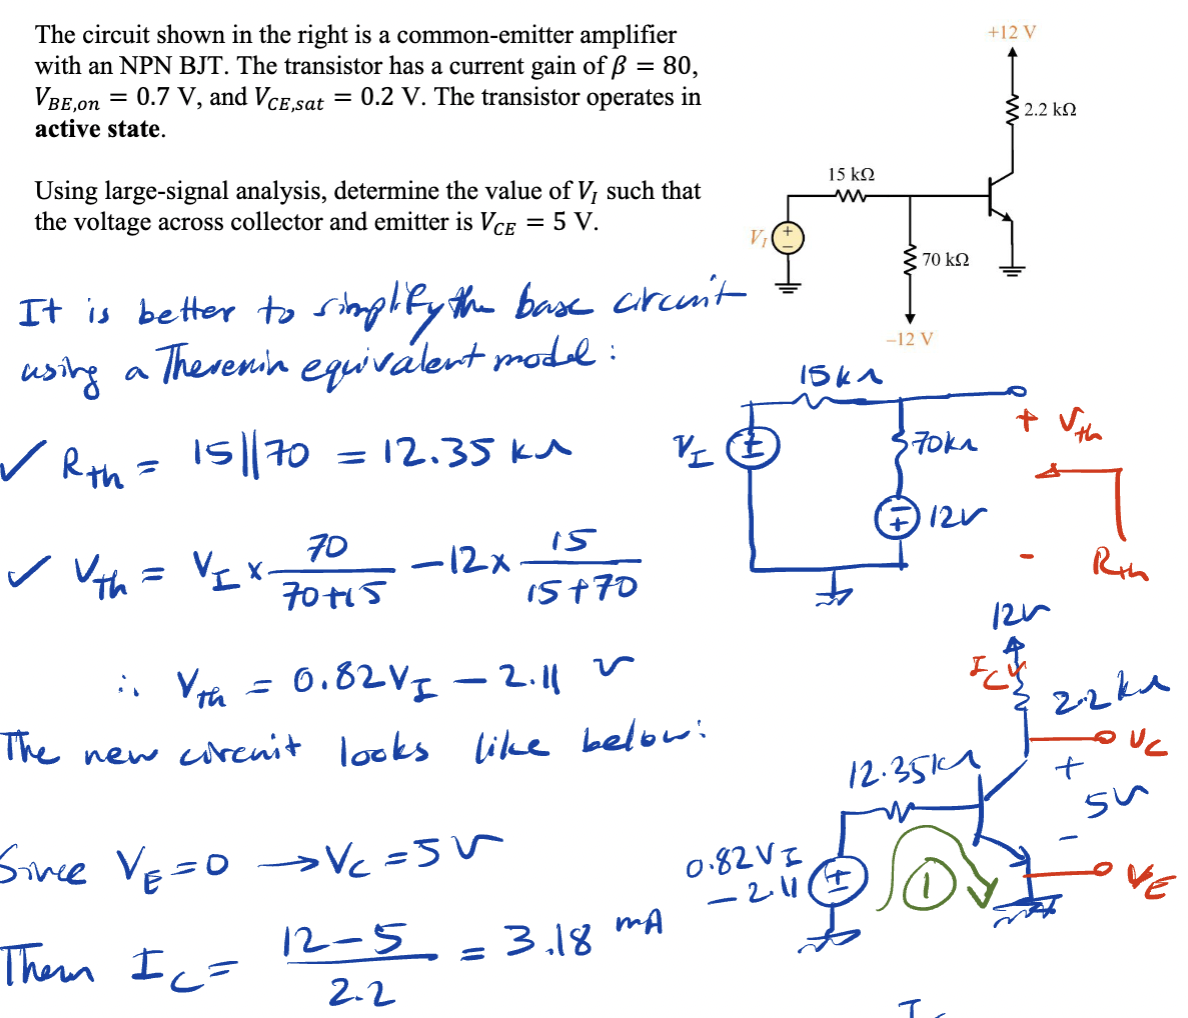 The circuit shown in the right is a common-emitter amplifier
with an NPN BJT. The transistor has a current gain of β = 80,
V_BE,on = 0.7 V, and V_CE,sat = 0.2 V. The transistor operates in
active state.
Using large-signal analysis, determine the value of V_I such that
the voltage across collector and emitter is V_CE = 5 V.
+12 V
2.2 kΩ
15 kΩ
V_I
+
−
70 kΩ
−12 V
It is better to simplify the base circuit
using a Thevenin equivalent model :
15kΩ
V_I
+
-
70kΩ
-
+
12V
+ V_th
-
R_th
✓ R_th = 15||70 = 12.35 kΩ
✓ V_th = V_I × 70/(70+15) − 12 × 15/(15+70)
∴ V_th = 0.82V_I − 2.11 V
The new circuit looks like below:
12V
I_C
2.2kΩ
V_C
+
5V
-
V_E
12.35kΩ
0.82V_I
− 2.11
+
-
1
Since V_E = 0 → V_C = 5V
Then I_C = (12−5)/2.2 = 3.18 mA
I